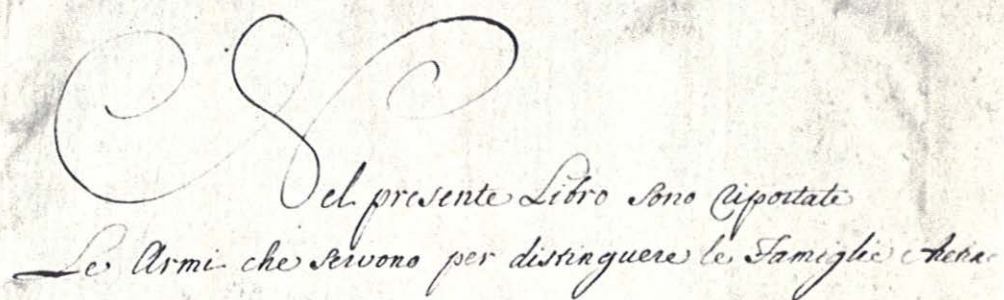 Nel presente Libro sono riportate
Le Armi che servono per distinguere le Famiglie